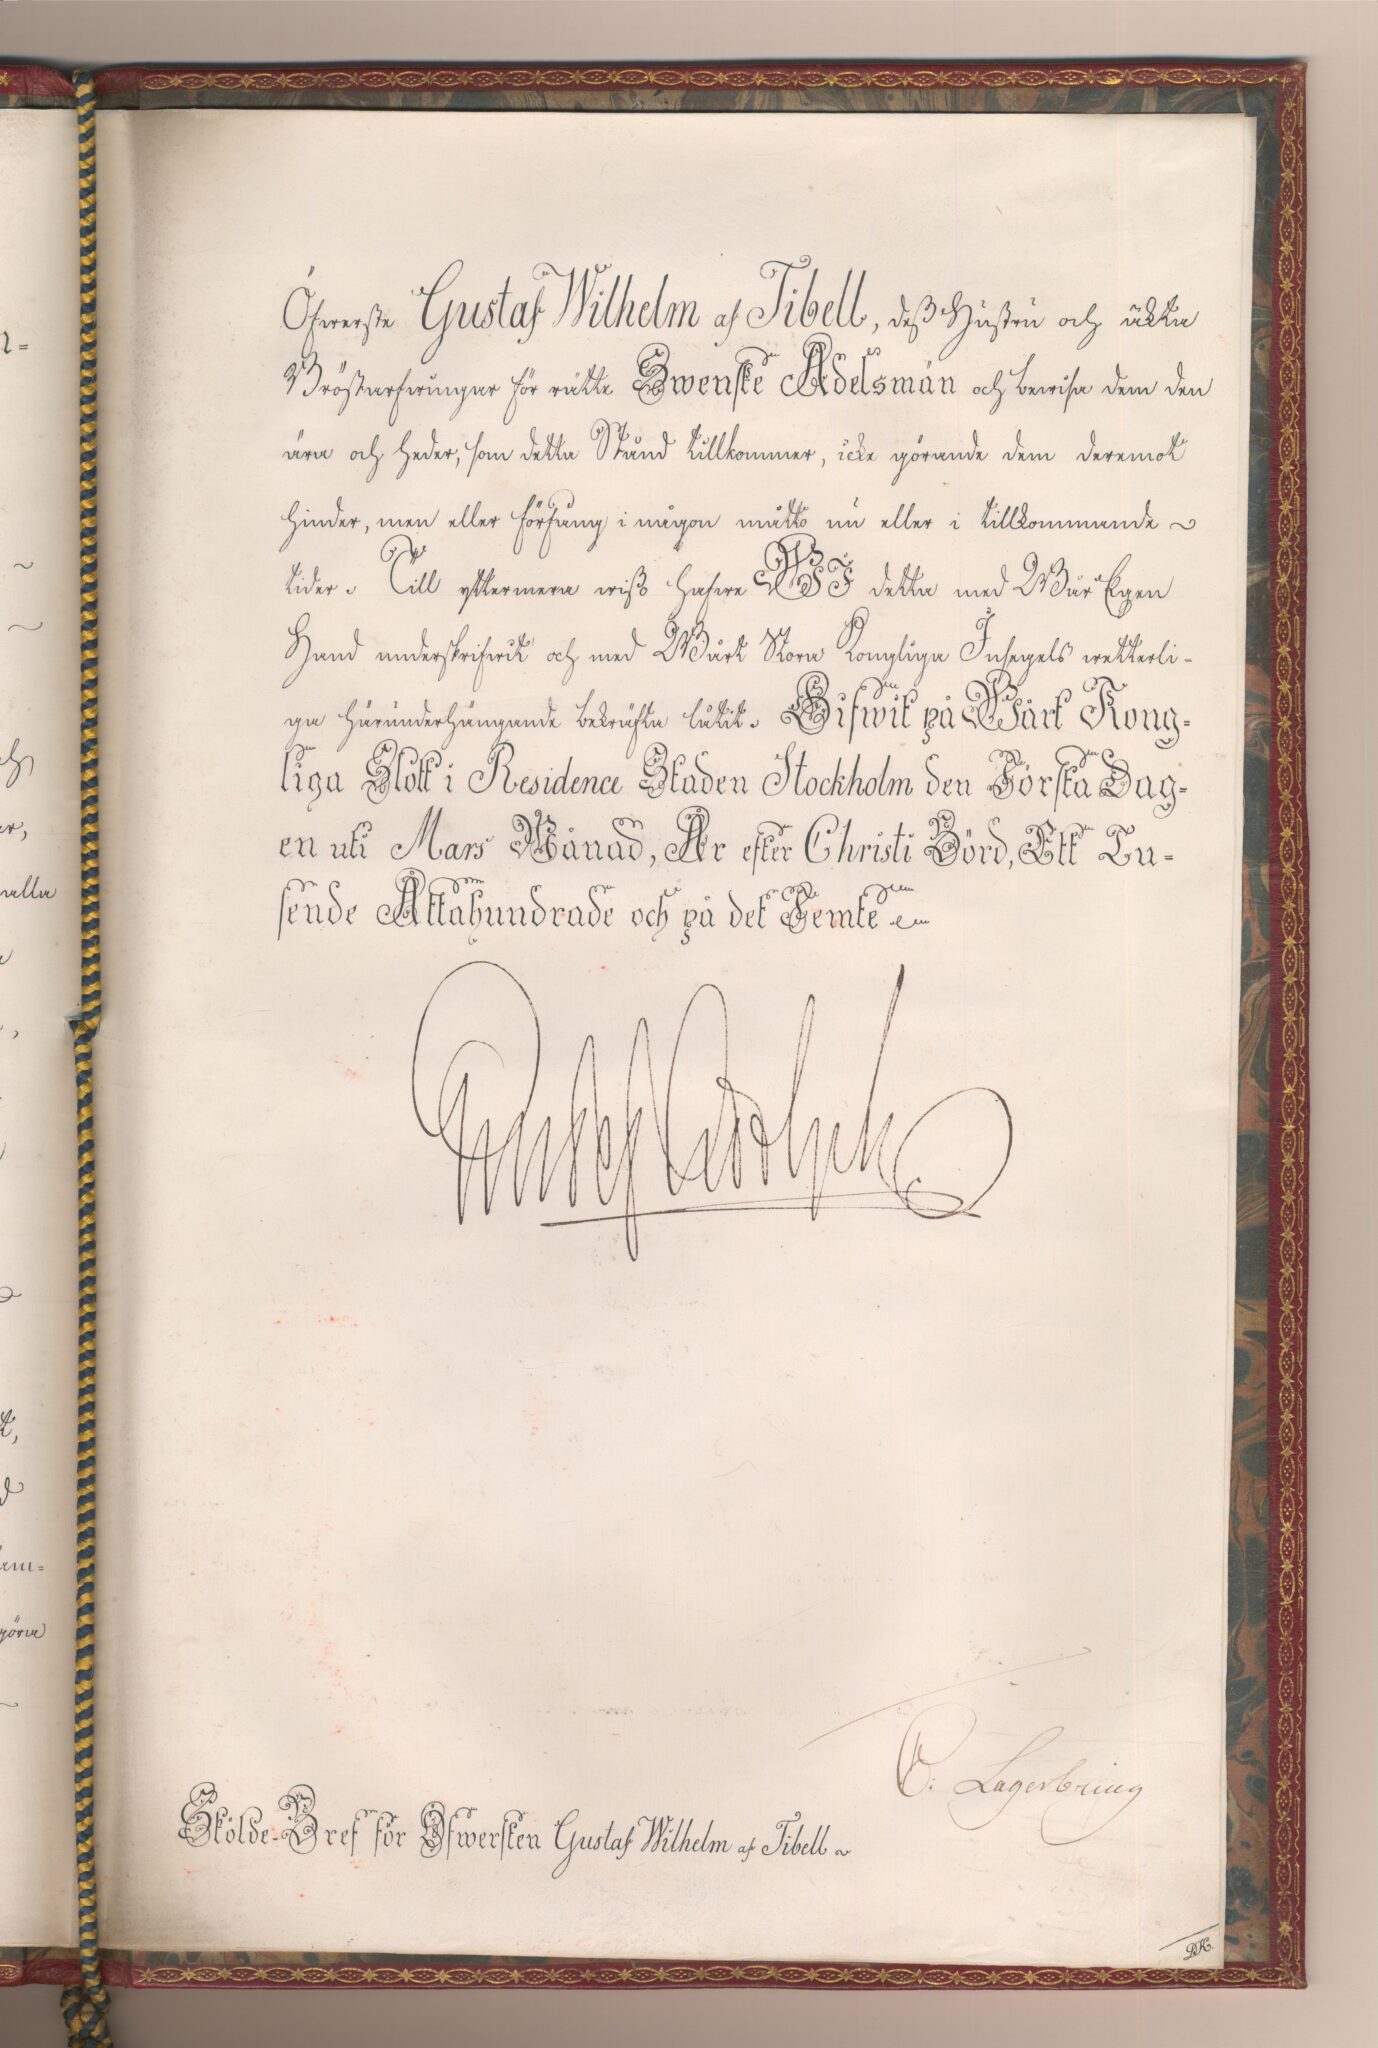 Öfwerste Gustaf Wilhelm af Tibell, deß Hustru och äkta
Bröstarfwingar för rätte Swenske Adelsmän och bewisa dem den
ära och heder, som detta Stånd tillkommer, icke görande dem deremot
hinder, men eller förfång i någon måtto nu eller i tillkommande ~
tider. Till yttermera wiß hafwe WJ detta med Wår Egen
Hand underskrifwit och med Wårt Stora Kongliga Insegels wetterli-
ga härunderhängande bekräfta låtit. Gifwit på Wårt Kong-
liga Slott i Residence Staden Stockholm den Första Dag-
en uti Mars Månad, År efter Christi Börd, Ett Tu-
sende Åttahundrade och på det Femte
Gustaf Adolph
C: Lagerbring
Skölde-Bref för Öfwersten Gustaf Wilhelm af Tibell ~
n-
alla
er,
göra